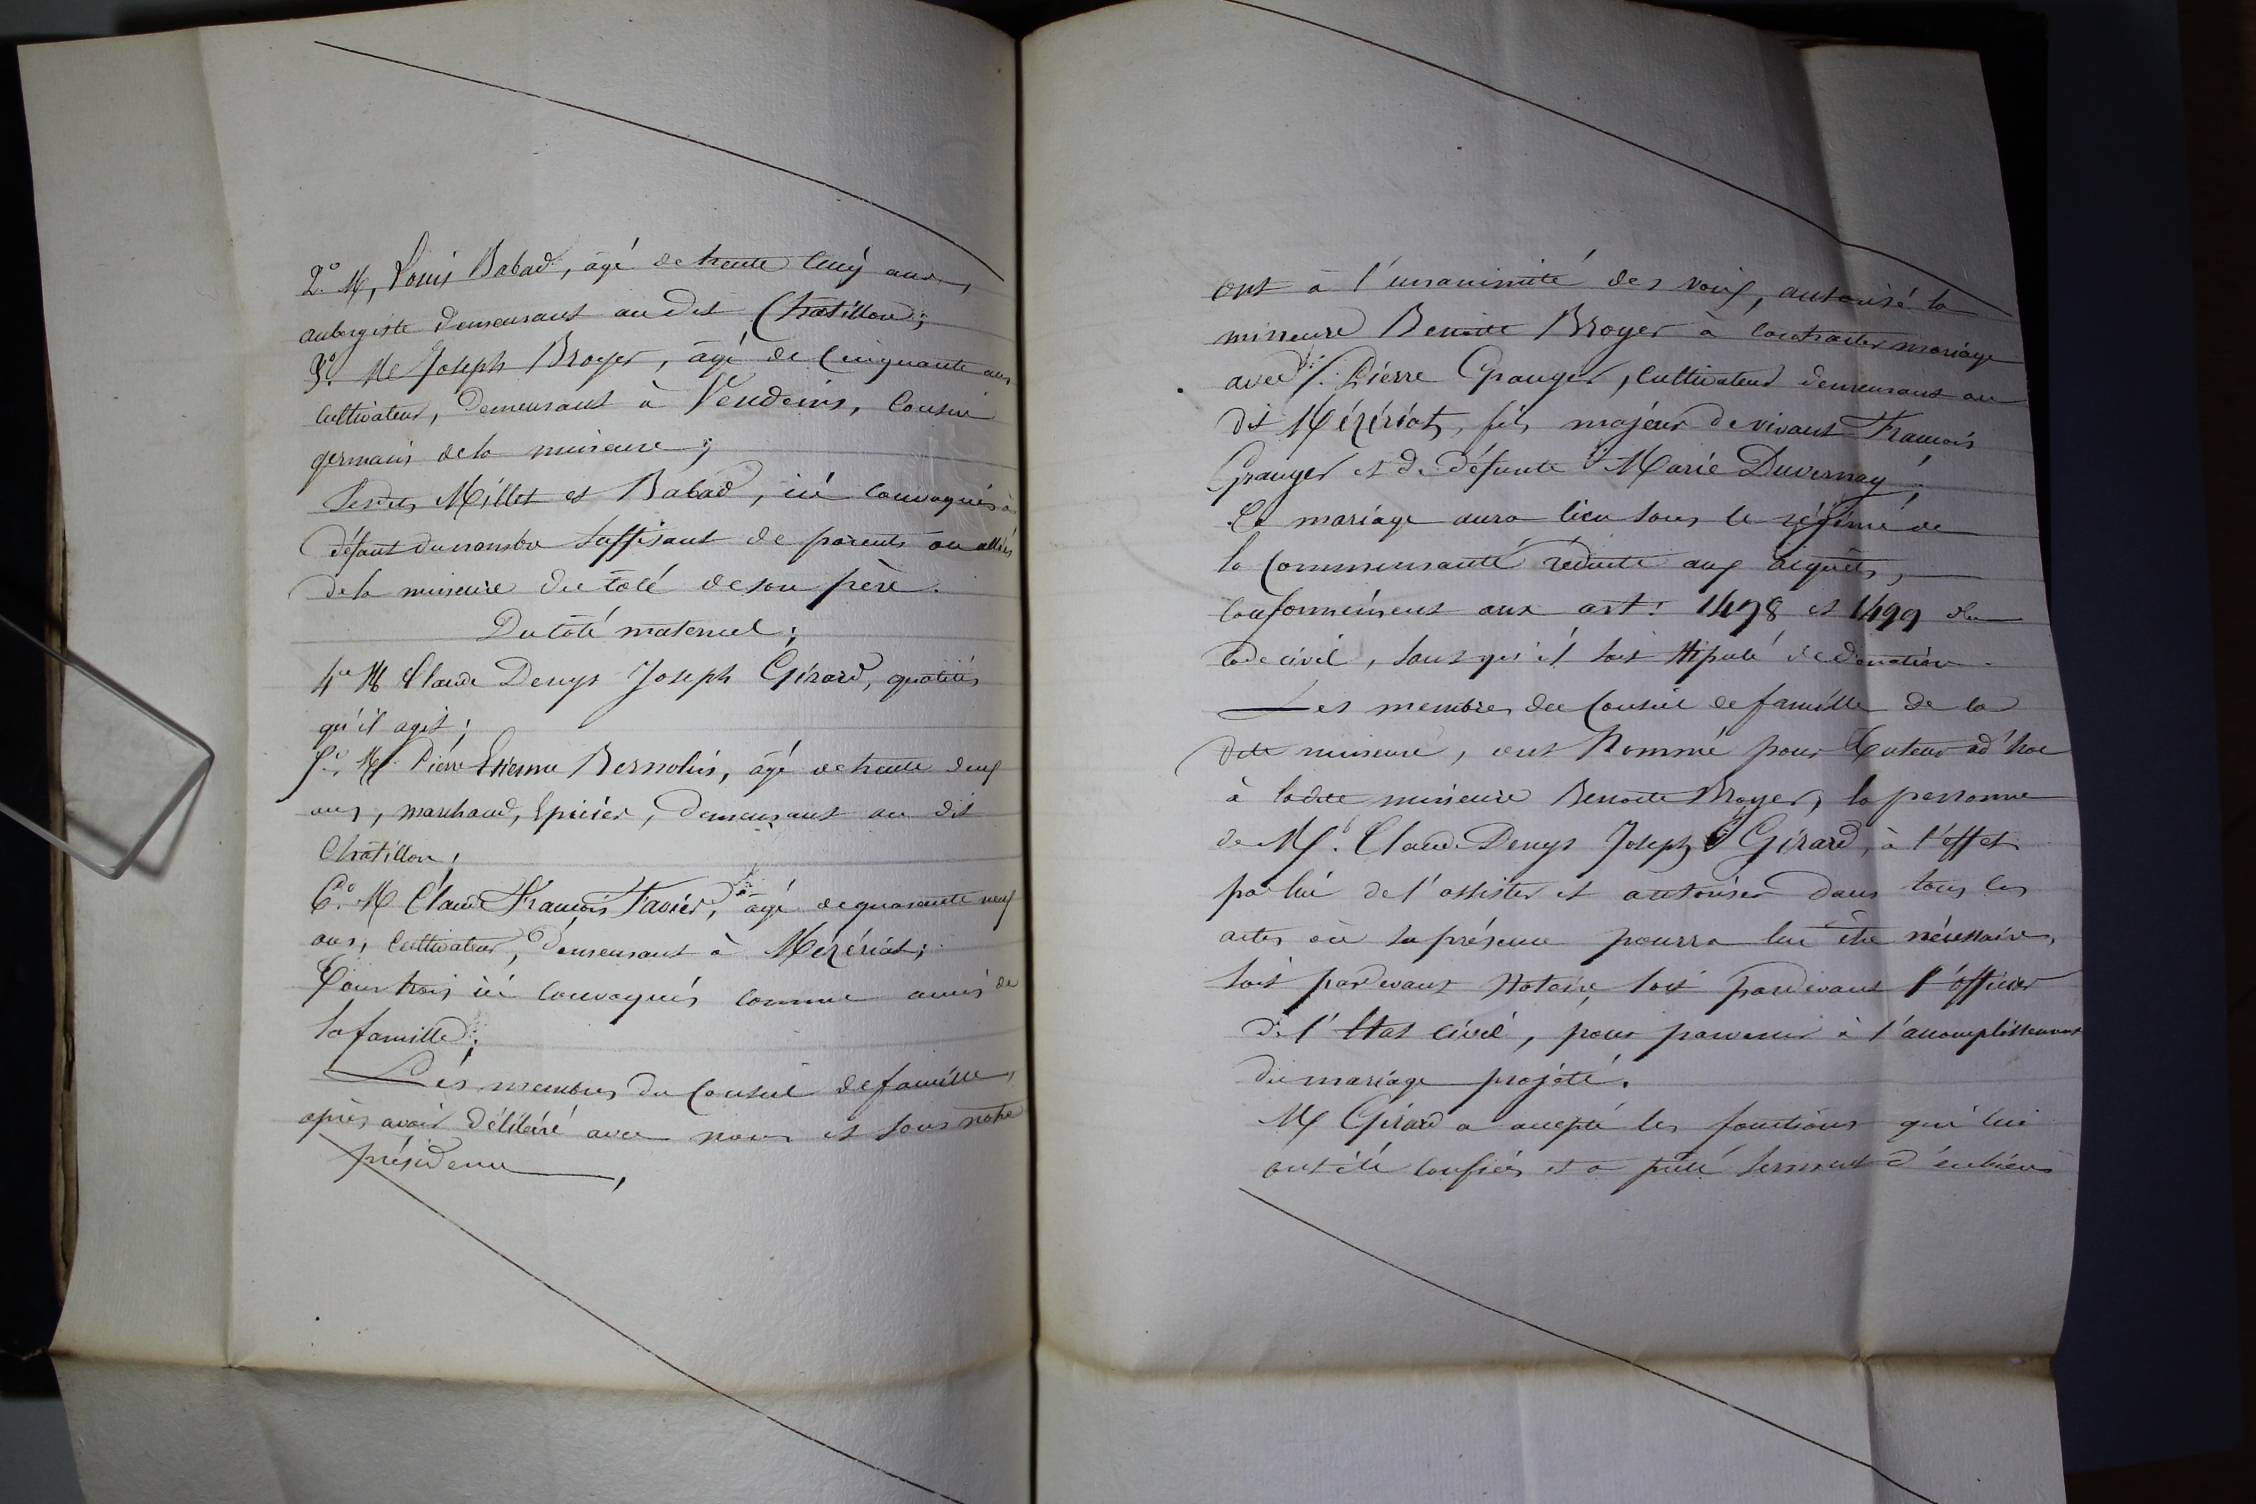 2.° M, Louis Babad, âgé de trente cinq ans,
aubergiste demeurant au dit Châtillon;
3.° M Joseph Broyer, âgé de Cinquante ans
Cultivateur, demeurant à Vendeins, Cousin
germain de la mineure;
Lesdits Millet et Babad, ici convoqués à
défaut du nombre suffisant de parents ou alliés
de la mineure du côté de son père.
Du côté maternel;
4.° M Claude Denys Joseph Girard, qualités
qu'il agit;
5.° M. Pierre Etienne Bernolin, âgé de trente deux
ans, marchand, Epicier, demeurant au dit
Châtillon;
6.° M Claude François Favier, âgé de quarante neuf
ans, Cultivateur, demeurant à Mézériat;
Tous trois ici convoqués comme amis de
la famille;
Les membres du Conseil de famille,
après avoir délibéré avec nous et sous notre
présidence,
ont à l'unanimité des voix, autorisé la
mineure Benoite Broyer à contracter mariage
avec S.r Pierre Granger, Cultivateur demeurant au
dit Mézériat, fils majeur de vivant François
Granger et de défunte Marie Duvernay;
Ce mariage aura lieu sous le régime de
la Communauté réduite aux acquêts,
conformément aux art: 1498 et 1499 du
Code civil, sans qu'il soit stipulé de donation.
Les membres du Conseil de famille de la
dite mineure, ont Nommé pour Tuteur ad'hoc
à ladite mineure Benoite Broyer, la personne
de M.r Claude Denys Joseph Girard, à l'effet
par lui de l'assister et autoriser dans tous les
actes où sa présence pourra lui être nécessaire,
soit pardevant Notaire, soit pardevant l'officier
de l'Etat civil, pour parvenir à l'accomplissement
du mariage projeté.
M Girard a accepté les fonctions qui lui
ont été confiées et a prêté serment d'en bien